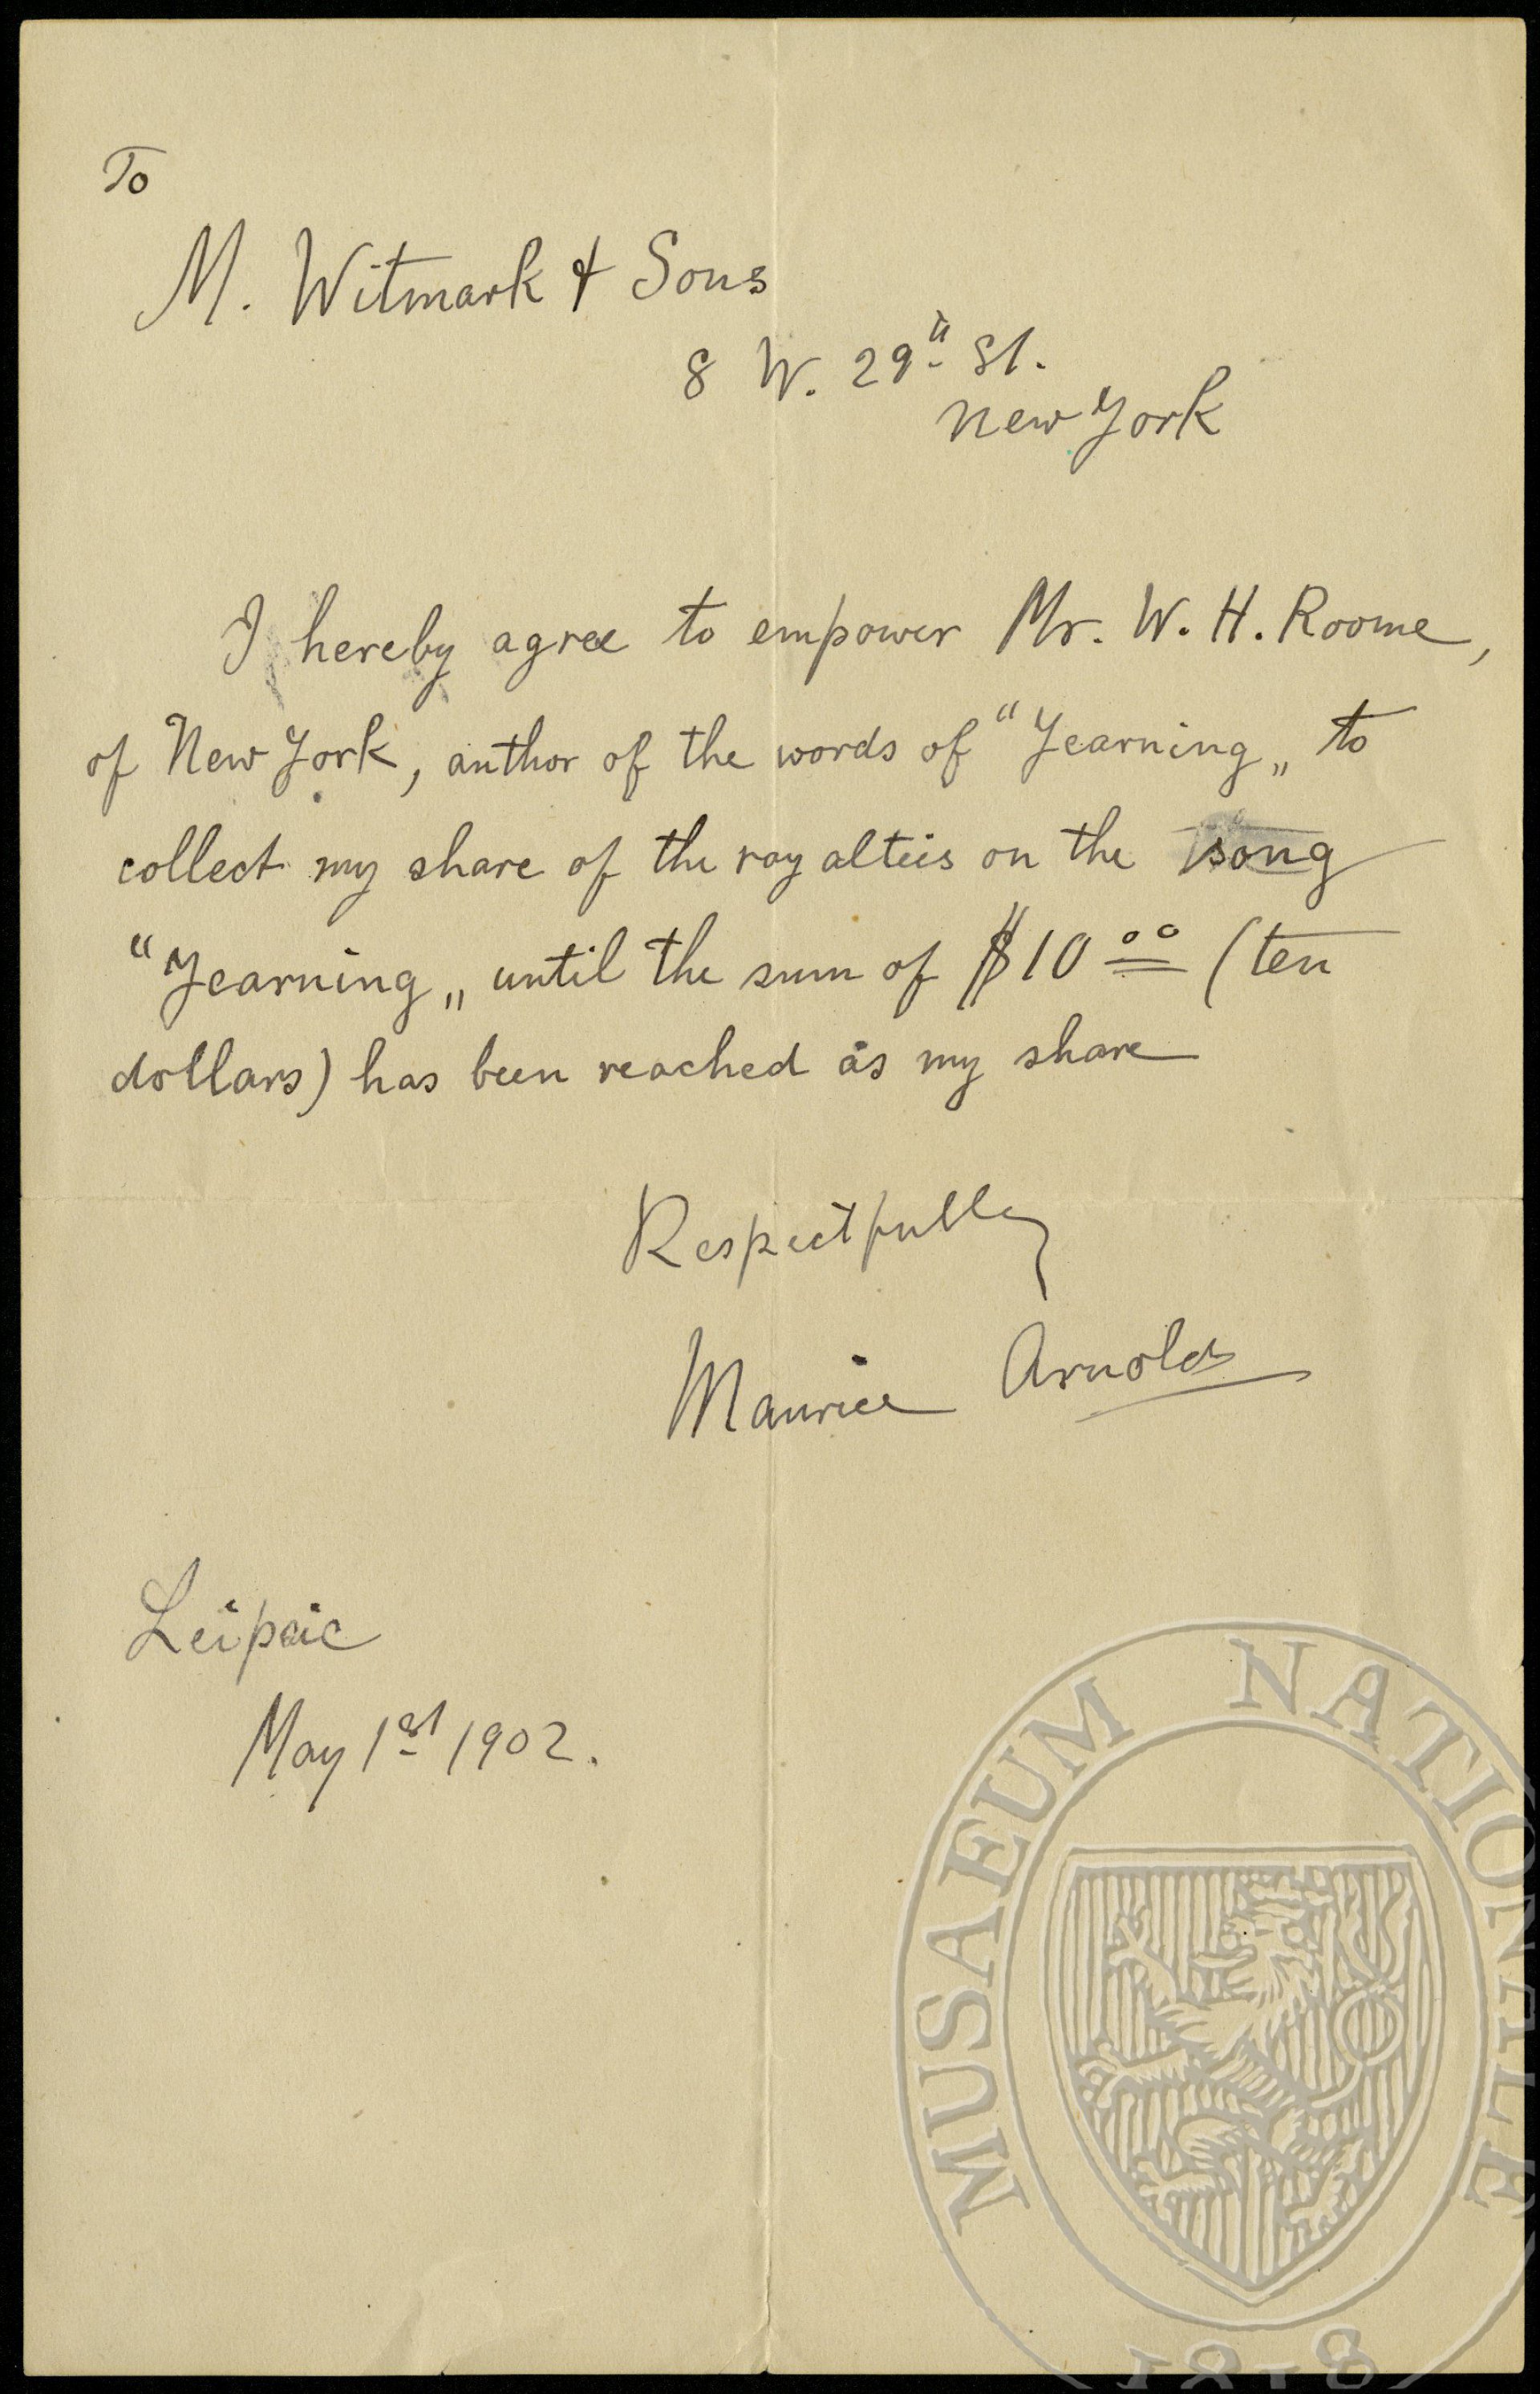 To
M. Witmark & Sons
8 W. 29th St.
New York
I hereby agree to empower Mr. W. H. Roome,
of New York, author of the words of “Yearning„ to
collect my share of the royalteis on the song
“Yearning„ until the sum of $10 00 (ten
dollars) has been reached as my share
Respectfully
Maurice Arnold
Leipsic
May 1st 1902.
MUSAEUM NATIONALE
1818